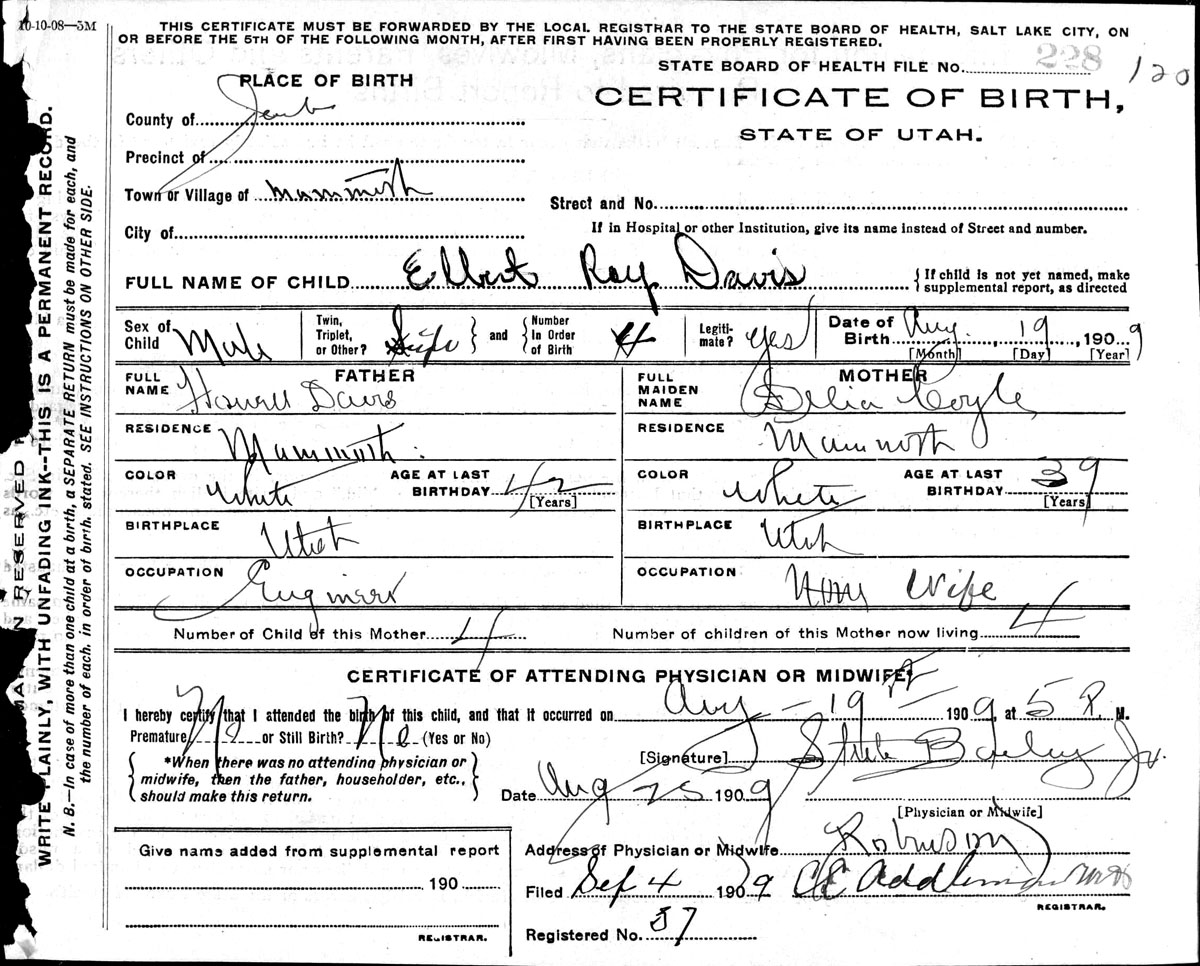 10-10-08—5M
THIS CERTIFICATE MUST BE FORWARDED BY THE LOCAL REGISTRAR TO THE STATE BOARD OF HEALTH, SALT LAKE CITY, ON
OR BEFORE THE 5TH OF THE FOLLOWING MONTH, AFTER FIRST HAVING BEEN PROPERLY REGISTERED.
PLACE OF BIRTH
STATE BOARD OF HEALTH FILE No. 228 120
CERTIFICATE OF BIRTH,
STATE OF UTAH.
County of Juab
Precinct of
Town or Village of Mammoth
Street and No.
City of
If in Hospital or other Institution, give its name instead of Street and number.
FULL NAME OF CHILD Elbert Roy Davis
{ If child is not yet named, make
supplemental report, as directed
Sex of Child Male
Twin, Triplet, or Other?
} and { Number In Order of Birth 4
Legiti-mate? yes
Date of Birth Aug. 19, 1909
[Month] [Day] [Year]
FATHER
FULL NAME Howell Davis
RESIDENCE Mammoth.
COLOR White
AGE AT LAST BIRTHDAY 42
[Years]
BIRTHPLACE Utah
OCCUPATION Engineer
MOTHER
FULL MAIDEN NAME Delia Coyle
RESIDENCE Mammoth
COLOR White
AGE AT LAST BIRTHDAY 39
[Years]
BIRTHPLACE Utah
OCCUPATION Wife
Number of Child of this Mother 4
Number of children of this Mother now living 4
CERTIFICATE OF ATTENDING PHYSICIAN OR MIDWIFE
I hereby certify that I attended the birth of this child, and that it occurred on Aug - 19th 1909, at 5 P. M.
Premature? No or Still Birth? No (Yes or No)
{ *When there was no attending physician or
midwife, then the father, householder, etc.,
should make this return. }
[Signature] Bailey Jr.
Date Aug 25 1909
[Physician or Midwife]
Address of Physician or Midwife Robinson
Filed Sep 4 1909 CE Addleman
REGISTRAR.
Registered No. 57
Give name added from supplemental report
190
REGISTRAR.
WRITE PLAINLY, WITH UNFADING INK--THIS IS A PERMANENT RECORD.
N. B.—In case of more than one child at a birth, a SEPARATE RETURN must be made for each, and
the number of each, in order of birth, stated. SEE INSTRUCTIONS ON OTHER SIDE.